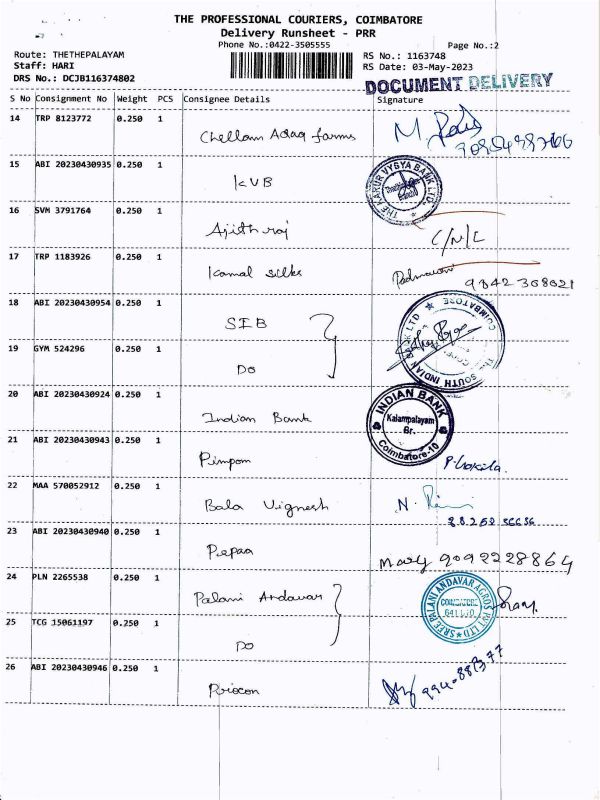 THE PROFESSIONAL COURIERS, COIMBATORE
Delivery Runsheet - PRR
Phone No.:0422-3505555
Page No.:2
Route: THETHEPALAYAM
RS No.: 1163748
Staff: HARI
RS Date: 03-May-2023
DRS No.: DCJB116374802
DOCUMENT DELIVERY
S No Consignment No Weight PCS Consignee Details Signature
14 TRP 8123772 0.250 1
Chellam Adaq farms
15 ABI 20230430935 0.250 1
KVB
THE KARUR VYSYA BANK LTD.
16 SVM 3791764 0.250 1
Ajith raj
C/N/L
17 TRP 1183926 0.250 1
Kamal silks
9342308021
18 ABI 20230430954 0.250 1
SIB
THE SOUTH INDIAN BANK LTD
COIMBATORE
19 GYM 524296 0.250 1
DO
20 ABI 20230430924 0.250 1
Indian Bank
INDIAN BANK
Kalampalayam
Br.
Coimbatore-10
21 ABI 20230430943 0.250 1
Pimpom
22 MAA 570052912 0.250 1
Bala Vignesh
23 ABI 20230430940 0.250 1
Pepaa
Mary 9092228864
24 PLN 2265538 0.250 1
Palani Andavar
SREE PALANI ANDAVAR AGROS PVT LTD
COIMBATORE
25 TCG 15061197 0.250 1
DO
26 ABI 20230430946 0.250 1
Pricon